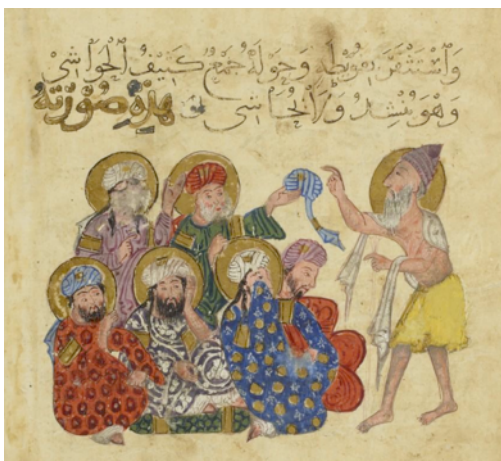 وَاسْتَثْفَرَ بِفُوَيْطَةٍ وَحَوْلَهُ جَمْعٌ كَثِيفُ الْحَوَاشِي
وَهُوَ يُنْشِدُ وَلَا يُحَاشِي هَذِهِ صُورَتُهُ